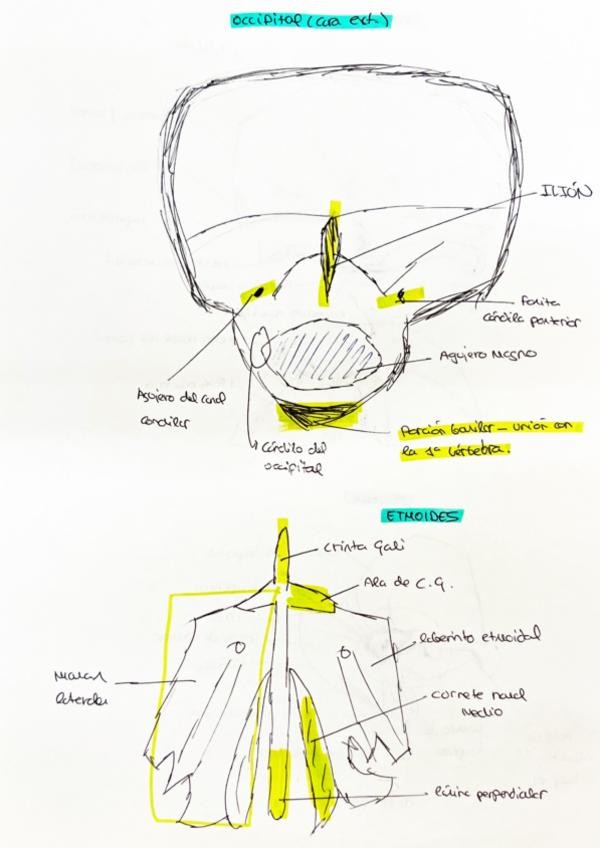 OCCIPITAL (cara ext.)
ILIÓN
Fosita
cóndila posterior
Agujero Magno
Agujero del canal
condilar
Cóndilo del
occipital
Porción basilar - unión con
la 1ª vértebra.
ETMOIDES
Crista Gali
Ala de C.G.
laberinto etmoidal
Masas
laterales
cornete nasal
medio
lámina perpendicular